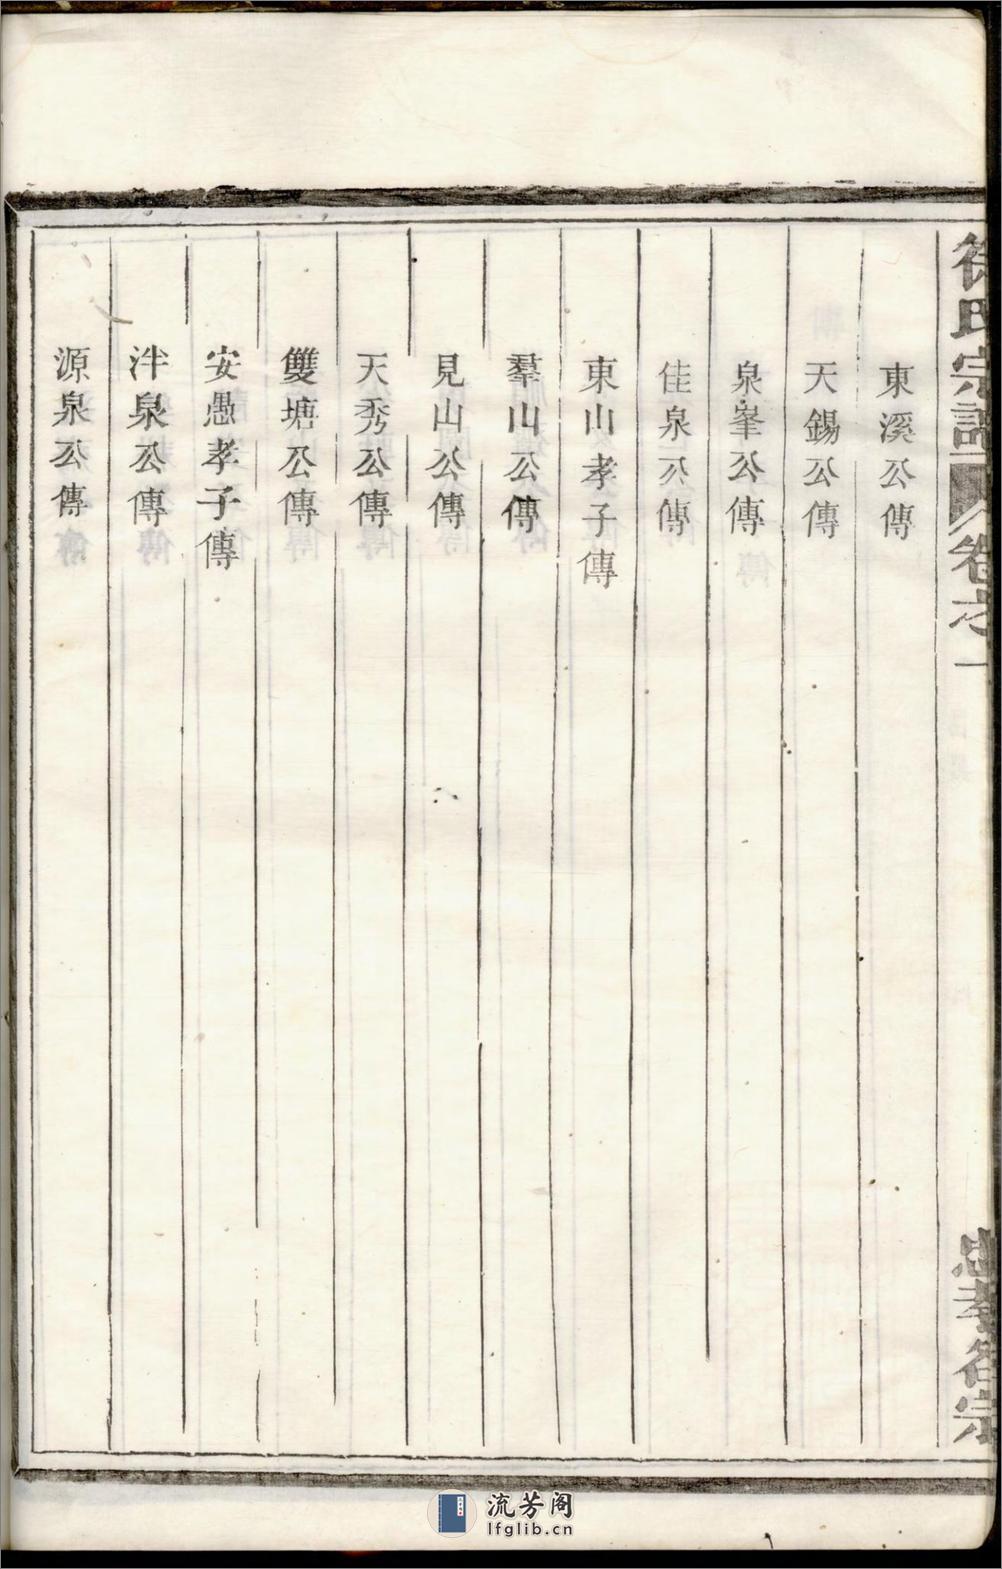 徐氏宗譜
卷之一
忠孝名宗
東溪公傳
天錫公傳
泉峯公傳
佳泉公傳
東山孝子傳
羣山公傳
見山公傳
天秀公傳
雙塘公傳
安愚孝子傳
泮泉公傳
源泉公傳
流芳阁
lfglib.cn